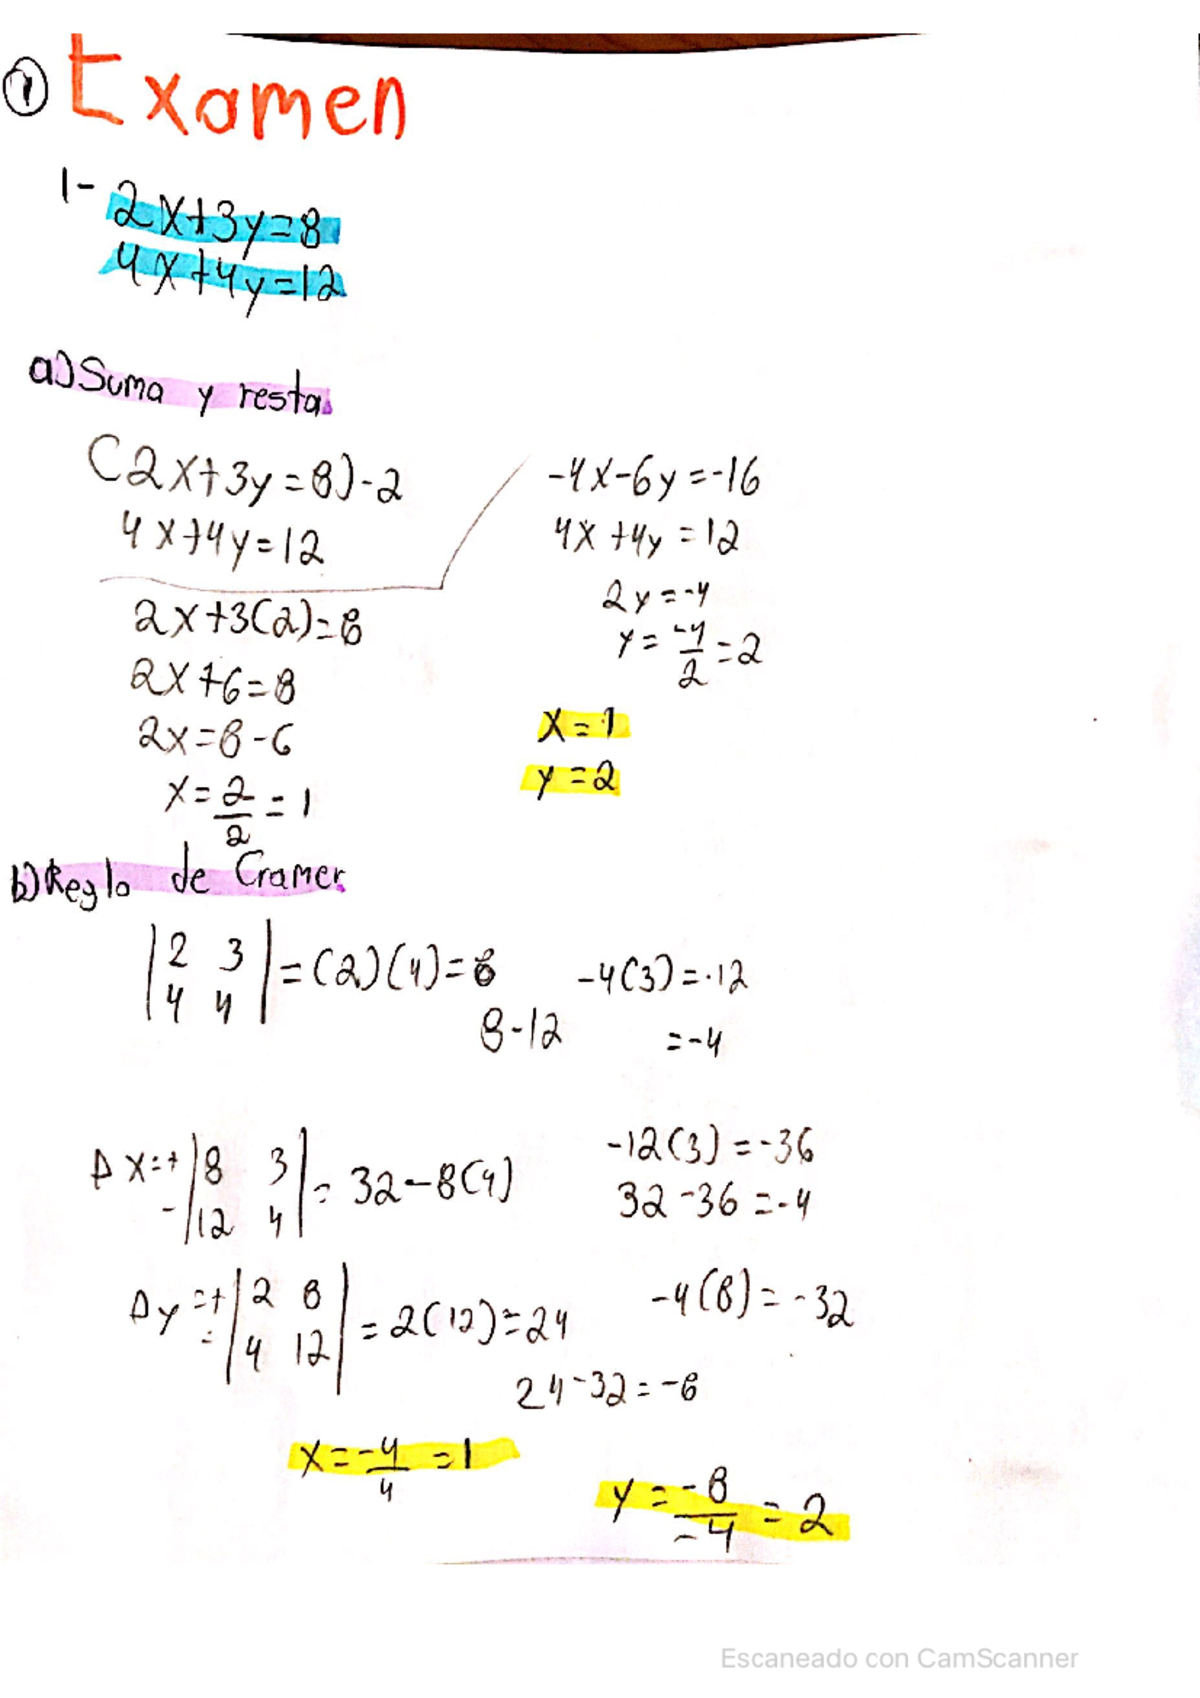 ① Examen
1- 2x+3y=8
4x+4y=12
a) Suma y resta
(2x+3y=8)-2
4x+4y=12
2x+3(2)=8
2x+6=8
2x=8-6
x=2/2=1
-4x-6y=-16
4x+4y=12
2y=-4
y=-4/2=2
x=1
y=2
b) Regla de Cramer
|2 3|
|4 4| =(2)(4)=8 -4(3)=-12
8-12 =-4
Δx=+|8 3|
-|12 4| = 32-8(4)
-12(3)=-36
32-36=-4
Δy=+|2 8|
-|4 12| =2(12)=24 -4(8)=-32
24-32=-8
x=-4/4=1
y=-8/-4=2
Escaneado con CamScanner